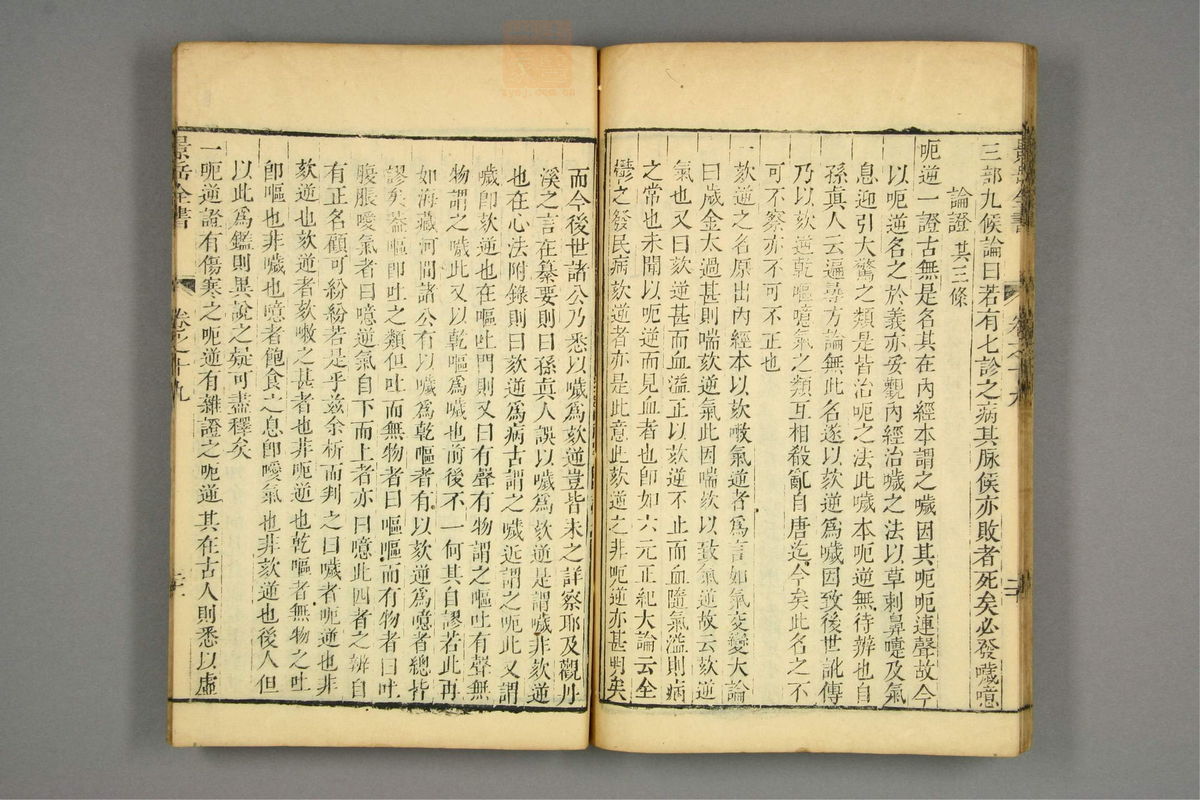 三部九候論曰若有七診之病其脉候亦敗者死矣必發噦噫
論證 共三條
呃逆一證古無是名其在內經本謂之噦因其呃呃連聲故今
以呃逆名之於義亦妥觀內經治噦之法以草刺鼻嚏及氣
息迎引大驚之類是皆治呃之法此噦本呃逆無待辨也自
孫真人云遍尋方論無此名遂以欬逆為噦因致後世訛傳
乃以欬逆乾嘔噫氣之類互相殺亂自唐迄今矣此名之不
可不察亦不可不正也
一欬逆之名原出內經本以欬嗽氣逆者為言如氣交變大論
曰歲金太過甚則喘欬逆氣此因喘欬以致氣逆故云欬逆
氣也又曰欬逆甚而血溢正以欬逆不止而血隨氣溢則病
之常也未聞以呃逆而見血者也即如六元正紀大論云金
鬱之發民病欬逆者亦是此意此欬逆之非呃逆亦甚明矣
而今後世諸公乃悉以噦為欬逆豈皆未之詳察耶及觀丹
溪之言在纂要則曰孫真人誤以噦為欬逆是謂噦非欬逆
也在心法附錄則曰欬逆為病古謂之噦近謂之呃此又謂
噦即欬逆也在嘔吐門則又曰有聲有物謂之嘔吐有聲無
物謂之噦此又以乾嘔為噦也前後不一何其自謬若此再
如海藏河間諸公有以噦為乾嘔者有以欬逆為噫者總皆
謬矣蓋嘔即吐之類但吐而無物者曰嘔嘔而有物者曰吐
腹脹噯氣者曰噫逆氣自下而上者亦曰噫此四者之辨自
有正名顧可紛紛若是乎茲余析而判之曰噦者呃逆也非
欬逆也欬逆者欬嗽之甚者也非呃逆也乾嘔者無物之吐
即嘔也非噦也噫者飽食之息即噯氣也非欬逆也後人但
以此為鑑則異說之疑可盡釋矣
一呃逆證有傷寒之呃逆有雜證之呃逆其在古人則悉以虛
景岳全書
卷之十九